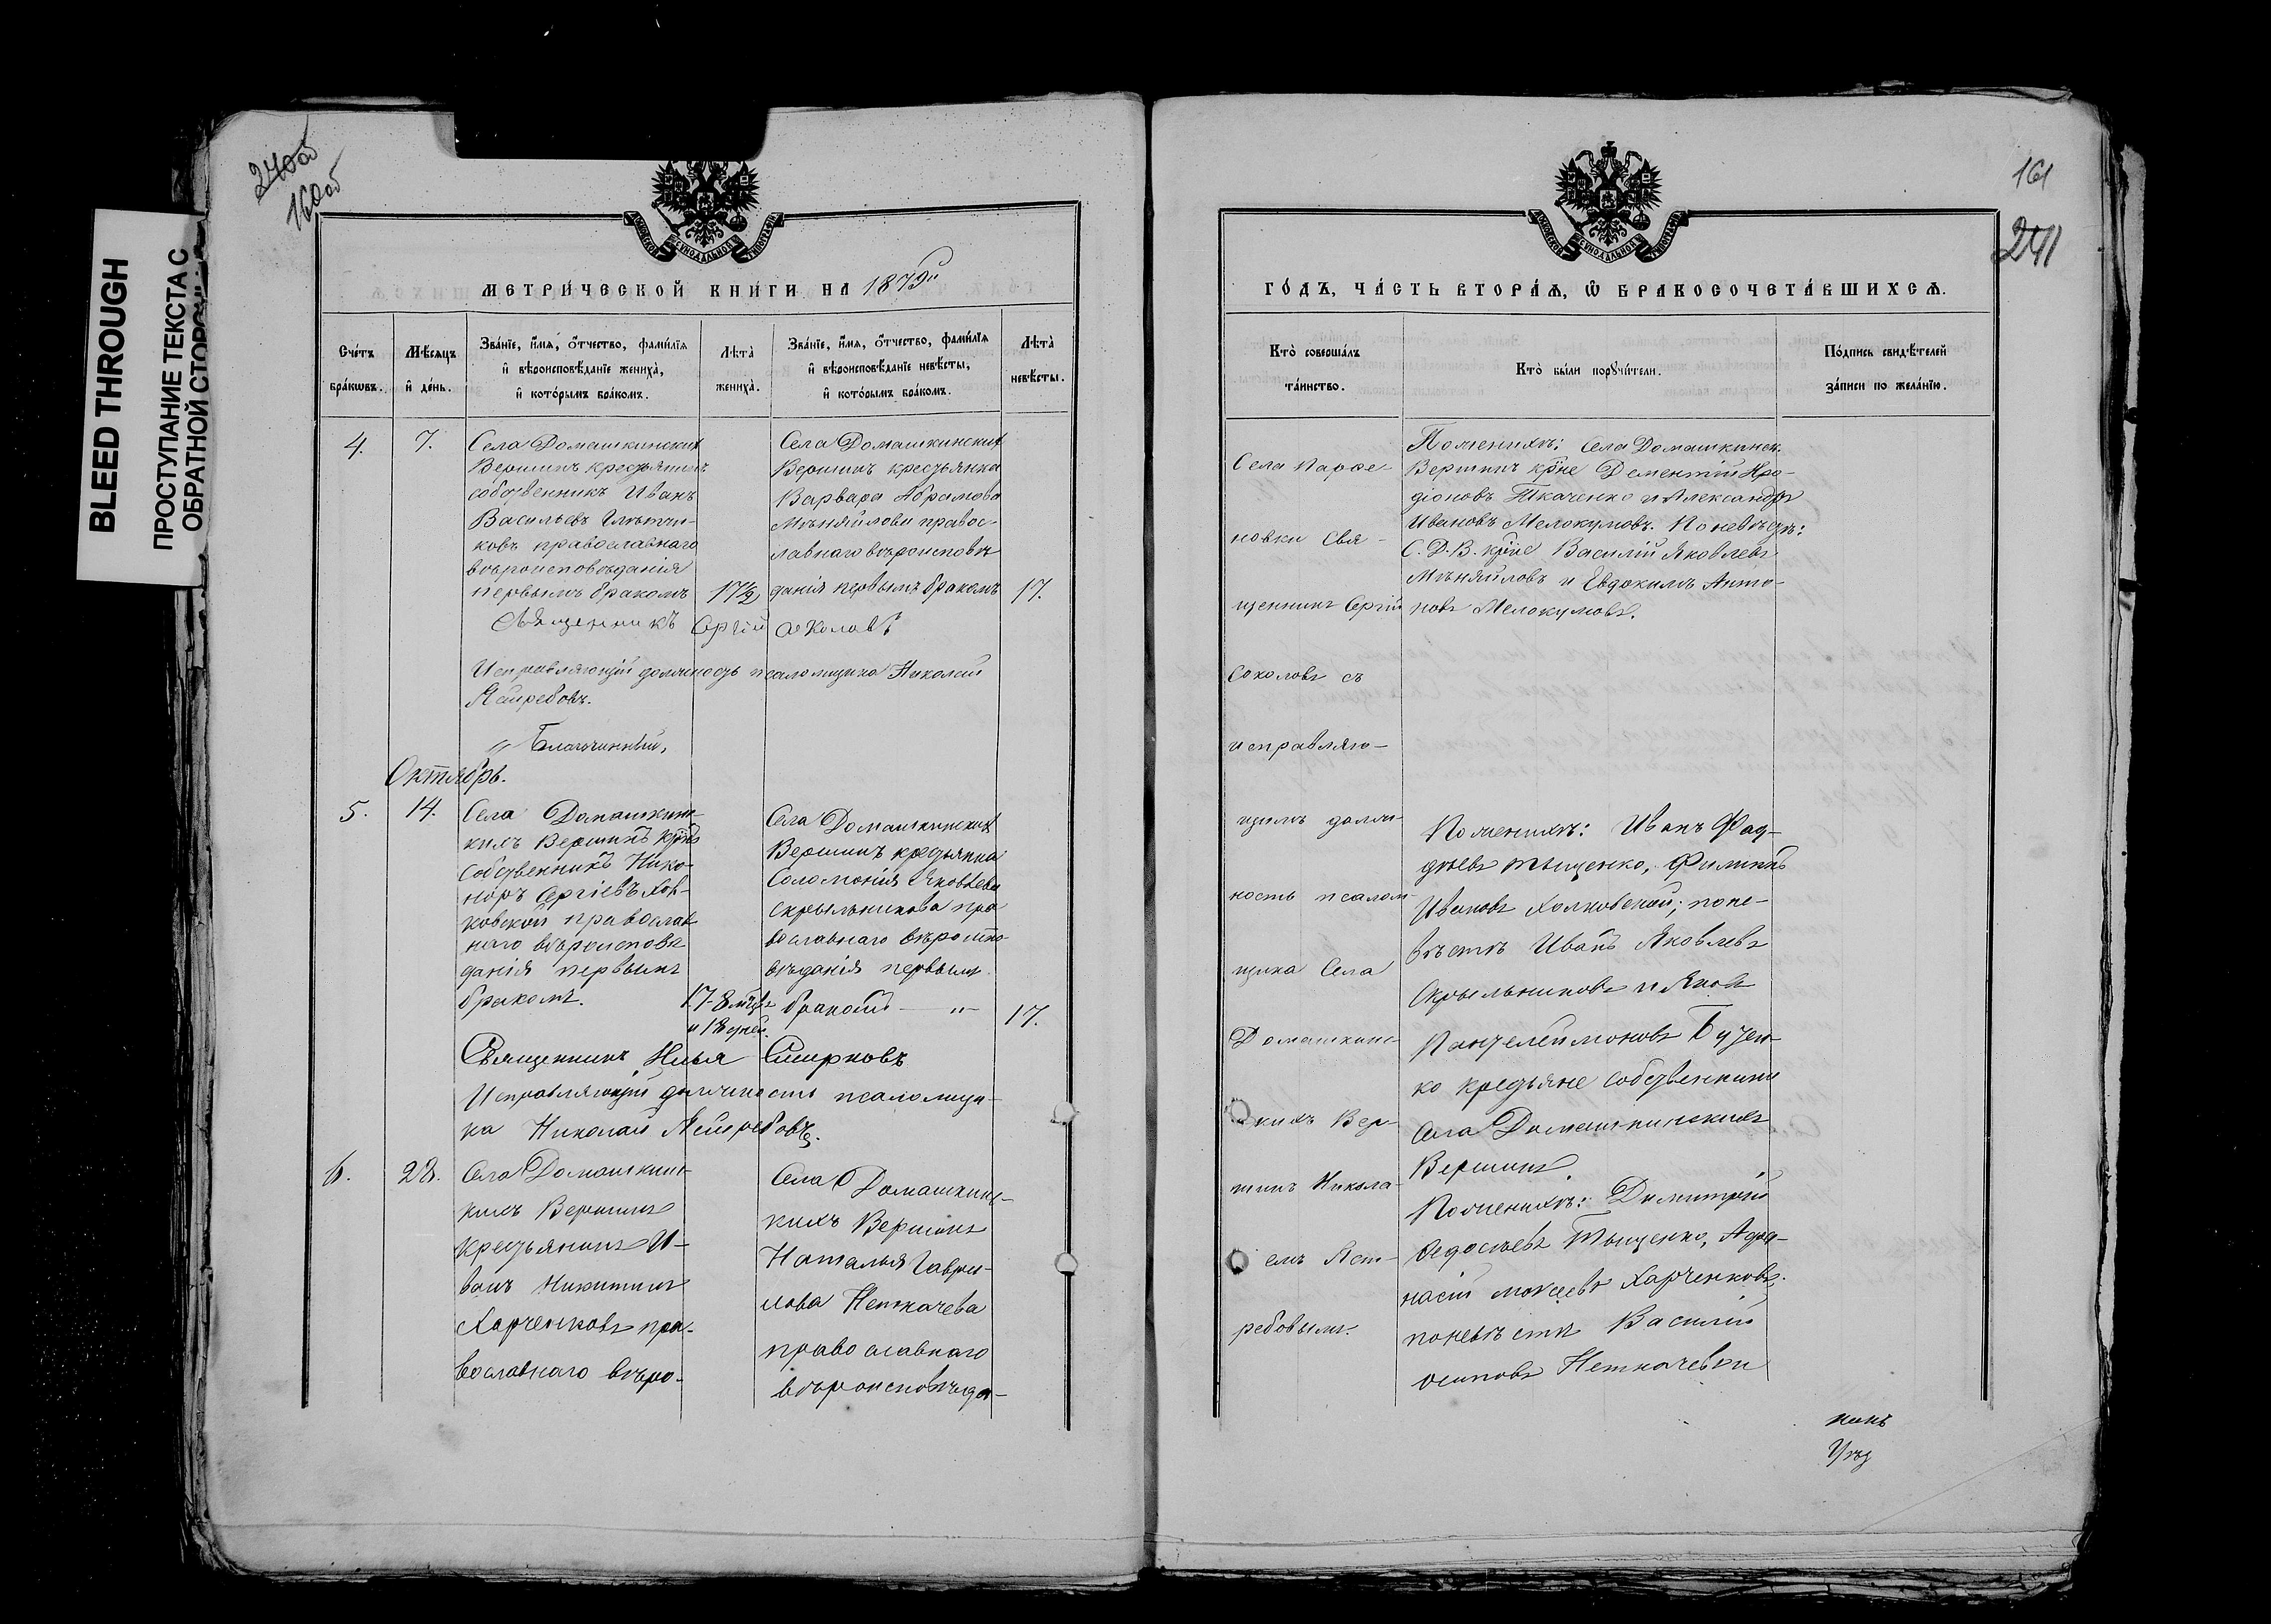 BLEED THROUGH
ПРОСТУПАНИЕ ТЕКСТА С
ОБРАТНОЙ
240об
160об
МЕТРИ́ЧЕСКОЙ КНИ́ГИ НА 1879
Сче́тъ бра́кωвъ.
Мѣ́сяцъ и҆ де́нь.
Зва́нїе, и҆́мѧ, ѻ҆́тчество, фами́лїѧ
и҆ вѣроисповѣ́данїе жениха̀,
и҆ кото́рымъ бра́комъ.
Лѣта̀
жениха̀.
Зва́нїе, и҆́мѧ, ѻ҆́тчество, фами́лїѧ
и҆ вѣроисповѣ́данїе невѣ́сты,
и҆ кото́рымъ бра́комъ.
Лѣта̀
невѣ́сты.
4.
7.
Села Домашкинскихъ
Вершинъ крестьянинъ
собственникъ Иванъ
Васильевъ
ковъ православнаго
вѣроисповѣданія
первымъ бракомъ
17½
Села Домашкинскихъ
Вершинъ крестьянка
Варвара Абрамова
Мѣняйлова правос-
лавнаго вѣроисповѣ
данія первымъ бракомъ
17.
Священникъ Сергій Соколовъ
Исправляющій должность псаломщика Николай
Ястребовъ.
Благочинный,
Октябрь.
5.
14.
Села Домашкинс-
кихъ Вершинъ
собственникъ Нико-
норъ Сергіевъ Хол-
ковской православ
наго вѣроисповѣ
данія первымъ
бракомъ.
17-8 мѣцв
и 18 дней.
Села Домашкинскихъ
Вершинъ крестьянка
Соломонія Яковлева
Скрыльникова пра
вославнаго вѣроиспо-
вѣданія первымъ
бракомъ — " —
17.
Священникъ Илья Смирновъ
Исправляющій должность псаломщи-
ка Николай Ястребовъ.
6.
28.
Села Домашкинс-
кихъ Вершинъ
крестьянинъ И-
ванъ Никитинъ
Харченковъ пра-
вославнаго вѣро-
Села Домашкинс-
кихъ Вершинъ
Наталья Гаври-
лова Неткачева
православнаго
вѣроисповѣда-
161
241
ГО́ДЪ, ЧА́СТЬ ВТОРА́Ѧ, Ѡ҆ БРАКОСОЧЕТА́ВШИХСѦ.
Кто̀ соверша́лъ
та́инство.
Кто̀ бы́ли порꙋчи́тели.
По́дпись свидѣ́телей
за́писи по жела́нїю.
Села Парфе-
новки Свя-
щенникъ Сергій
Соколовъ съ
исправляю-
щимъ долж-
ность псалом-
щика Села
Домашкинс-
кихъ Вер-
шинъ Никола-
емъ Яст-
ребовымъ.
По женихѣ: Села Домашкинск.
Вершинъ крне Дементій Иро-
діоновъ Ткаченко и Александръ
Ивановъ Мелокумовъ. По невѣстѣ:
С. Д. В. крне Василій Яковлевъ
Мѣняйловъ и Евдокимъ Анто-
новъ Мелокумовъ.
По женихѣ: Иванъ Фад-
дѣевъ Тыщенко, Филиппъ
Ивановъ Холковской; по не-
вѣстѣ Иванъ Яковлевъ
Скрыльниковъ и Яковъ
Пантелеймоновъ Бутен-
ко крестьяне собственники
Села Домашкинскихъ
Вершинъ.
По женихѣ: Димитрій
Федосѣевъ Тыщенко,
Мокѣевъ Харченковъ.
по невѣстѣ Василій
Осиповъ